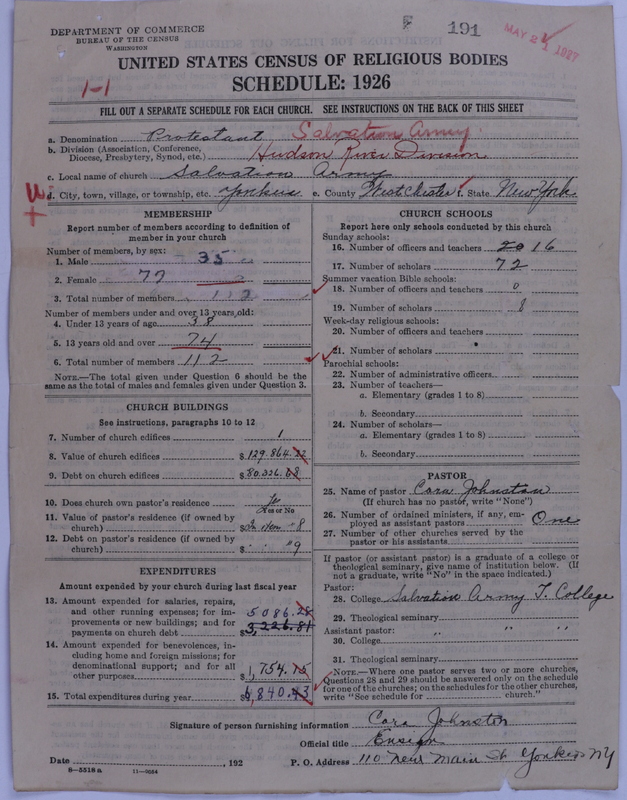 DEPARTMENT OF COMMERCE
BUREAU OF THE CENSUS
WASHINGTON
191
MAY 2 1927
UNITED STATES CENSUS OF RELIGIOUS BODIES
1-1
SCHEDULE: 1926
FILL OUT A SEPARATE SCHEDULE FOR EACH CHURCH. SEE INSTRUCTIONS ON THE BACK OF THIS SHEET
a. Denomination Protestant Salvation Army.
b. Division (Association, Conference, Diocese, Presbytery, Synod, etc.) Hudson River Division
c. Local name of church Salvation Army
d. City, town, village, or township, etc. Yonkers e. County West Chester f. State New York
MEMBERSHIP
Report number of members according to definition of
member in your church
Number of members, by sex:
1. Male 35
2. Female 77
3. Total number of members 112
Number of members under and over 13 years old:
4. Under 13 years of age 38
5. 13 years old and over 74
6. Total number of members 112
NOTE.—The total given under Question 6 should be
same as the total of males and females given under Question 3.
CHURCH BUILDINGS
See instructions, paragraphs 10 to 12
7. Number of church edifices 1
8. Value of church edifices $129.864.22
9. Debt on church edifices $80.226.68
10. Does church own pastor's residence Yes
Yes or No
11. Value of pastor's residence (if owned by
church) $In Item "8
12. Debt on pastor's residence (if owned by
church) $ " " "9
EXPENDITURES
Amount expended by your church during last fiscal year
13. Amount expended for salaries, repairs,
and other running expenses; for im-
provements or new buildings; and for
payments on church debt 5086.28
$3,226.81
14. Amount expended for benevolences, in-
cluding home and foreign missions; for
denominational support; and for all
other purposes $1,754.15
15. Total expenditures during year $6,840.43
CHURCH SCHOOLS
Report here only schools conducted by this church
Sunday schools:
16. Number of officers and teachers 20 16
17. Number of scholars 72
Summer vacation Bible schools:
18. Number of officers and teachers 0
19. Number of scholars
Week-day religious schools:
20. Number of officers and teachers
21. Number of scholars
Parochial schools:
22. Number of administrative officers
23. Number of teachers—
a. Elementary (grades 1 to 8)
b. Secondary
24. Number of scholars—
a. Elementary (grades 1 to 8)
b. Secondary
PASTOR
25. Name of pastor Cora Johnston
(If church has no pastor, write "None")
26. Number of ordained ministers, if any, em-
ployed as assistant pastors One
27. Number of other churches served by the
pastor or his assistants
If pastor (or assistant pastor) is a graduate of a college or
theological seminary, give name of institution below. (If
not a graduate, write "No" in the space indicated.)
Pastor:
28. College Salvation Army T. College
29. Theological seminary
Assistant pastor: " " "
30. College
31. Theological seminary
NOTE.—Where one pastor serves two or more churches,
Questions 28 and 29 should be answered only on the schedule
for one of the churches; on the schedules for the other churches,
write "See schedule for church."
Signature of person furnishing information Cora Johnston
Official title Ensign
Date , 192 P. O. Address 110 New Main St Yonkers NY
8-5518 a 11-9054